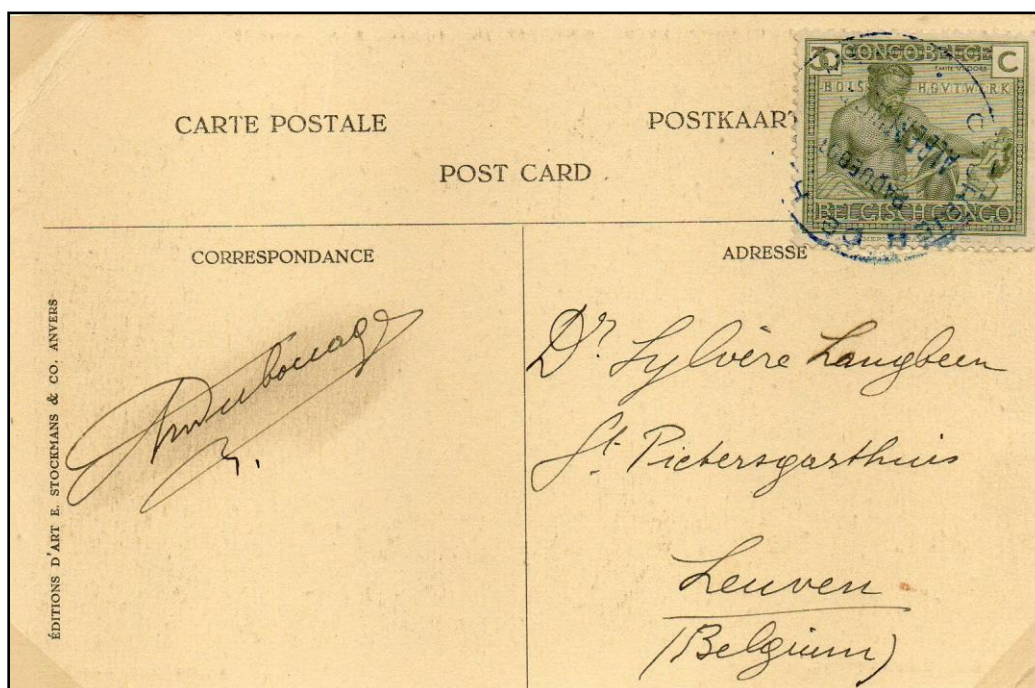 CARTE POSTALE
POSTKAART
POST CARD
30 C
CONGO BELGE
BOIS HOVTWERK
BELGISCH CONGO
PAQUEBOT
CORRESPONDANCE
ADRESSE
ÉDITIONS D'ART E. STOCKMANS & CO. ANVERS
Dr Sylvère Langbeen
St Pietersgasthuis
Leuven
(Belgium)